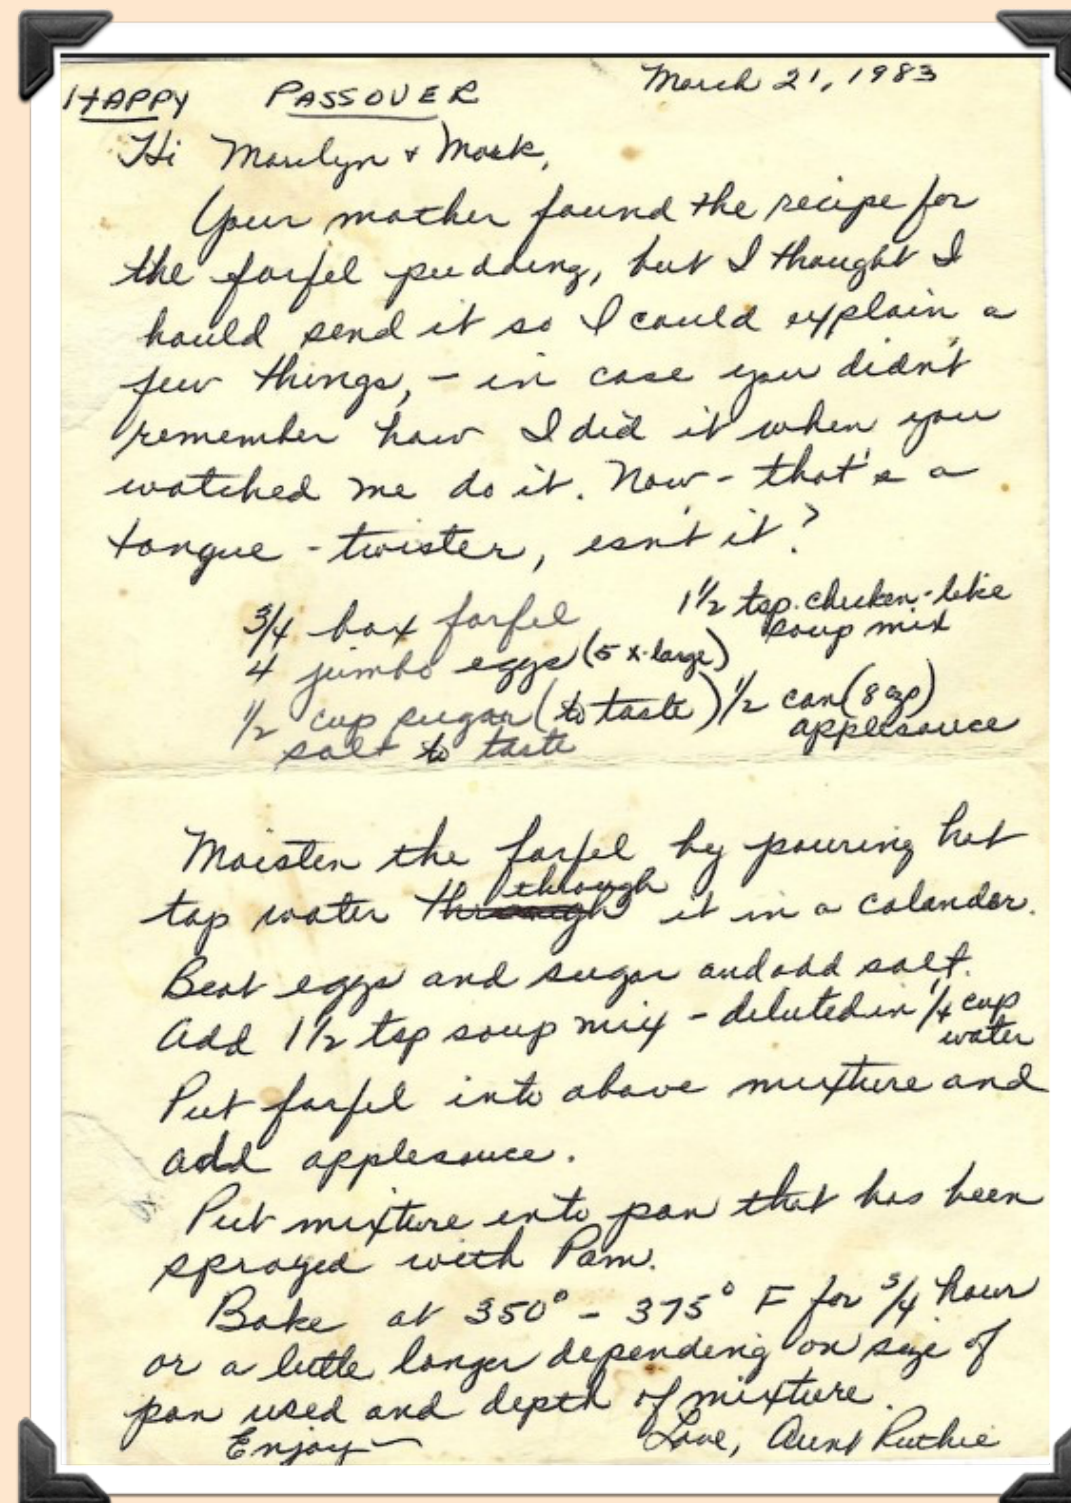 March 21, 1983
HAPPY PASSOVER
Hi Marilyn + Mark,
Your mother found the recipe for
the farfel pudding, but I thought I
hould send it so I could explain a
few things, - in case you didn't
remember how I did it when you
watched me do it. Now - that's a
tongue - twister, isn't it?
3/4 box farfel
4 jumbo eggs (5 x-large)
1/2 cup sugar (to taste)
salt to taste
1 1/2 tsp. chicken-like
soup mix
1/2 can (8 oz)
applesauce
Moisten the farfel by pouring hot
tap water through it in a colander.
Beat eggs and sugar and add salt.
Add 1 1/2 tsp soup mix - diluted in 1/4 cup
water
Put farfel into above mixture and
add applesauce.
Put mixture into pan that has been
sprayed with Pam.
Bake at 350° - 375° F for 3/4 hour
or a little longer depending on size of
pan used and depth of mixture.
Enjoy —
Love, Aunt Ruthie